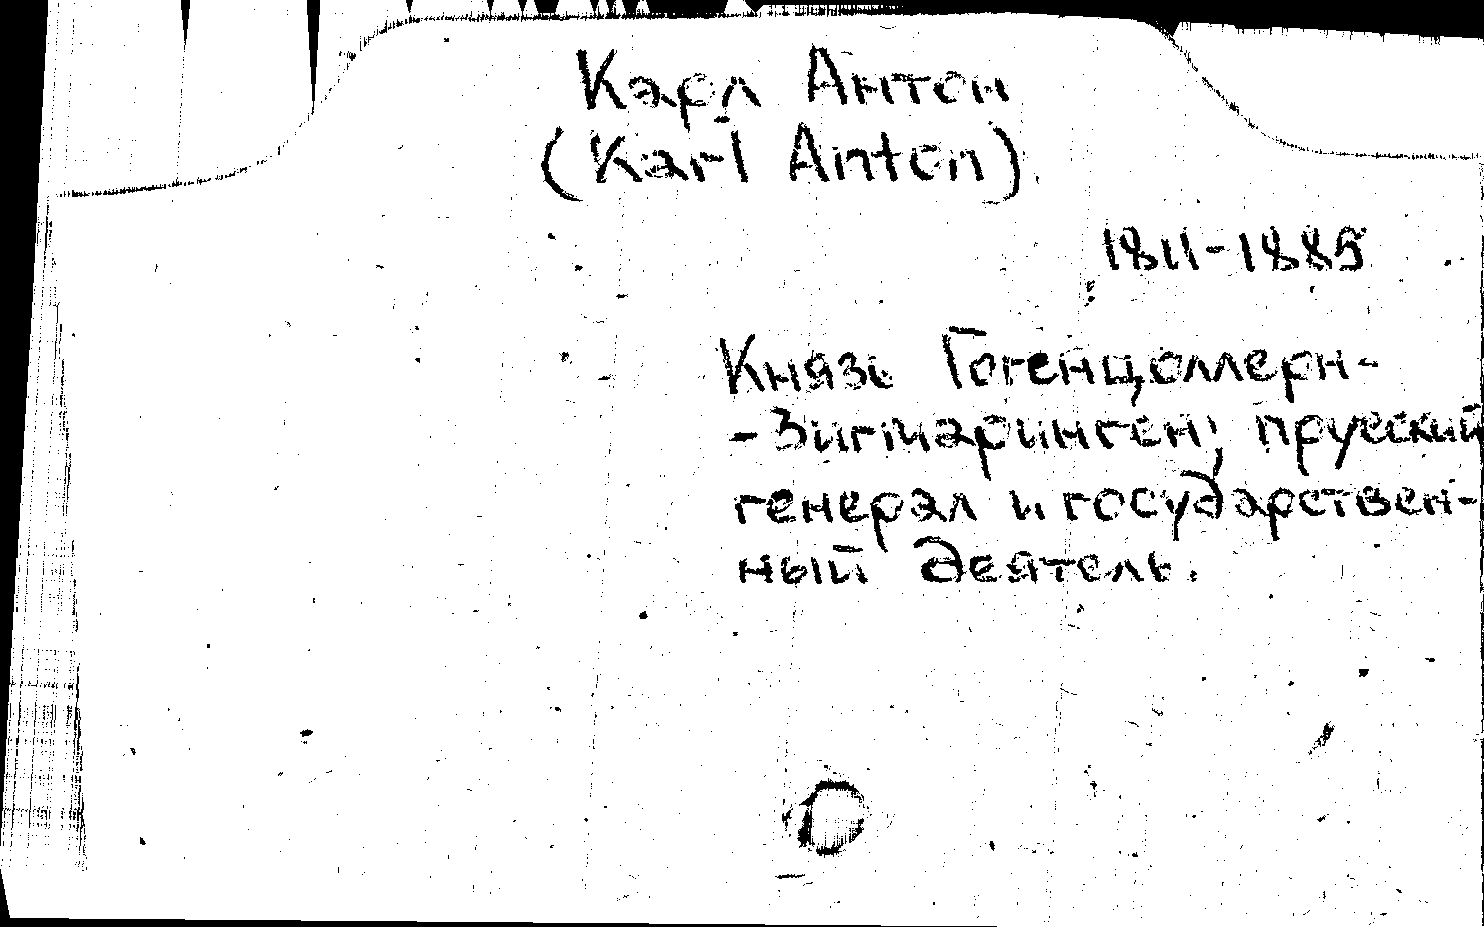 Карл Антон
(Karl Anton)
1811-1885
Князь Гогенцоллерн-
-Зигмаринген; прусский
генерал и государствен-
ный деятель.